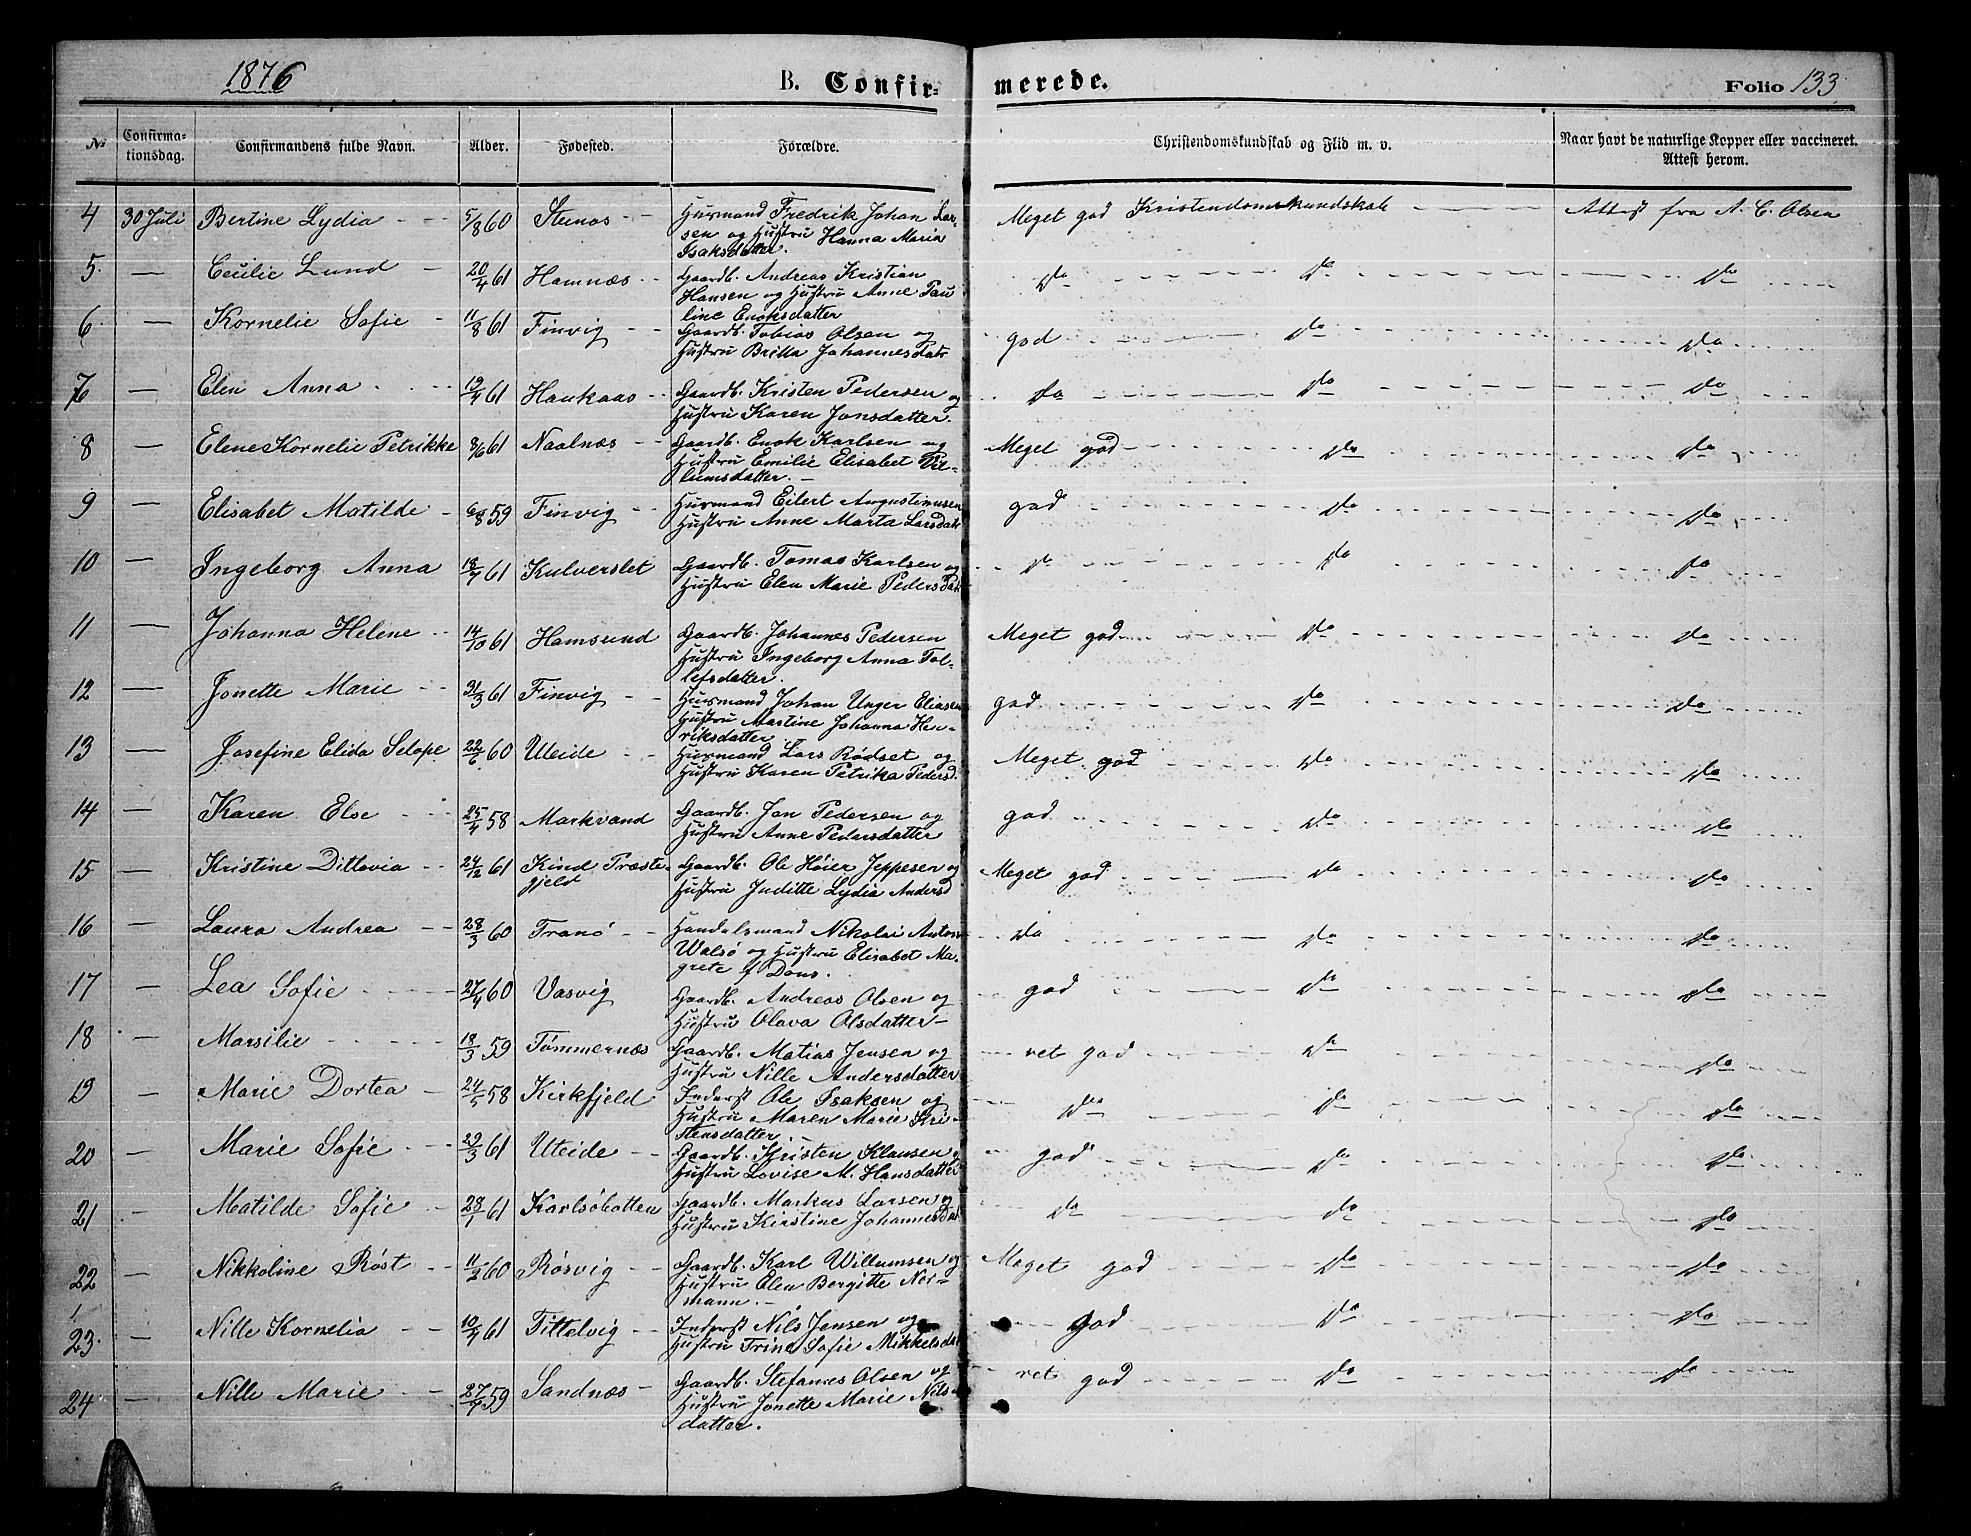 1876 B. Confirmerede. Folio 133
№ Confirmationsdag. Confirmandens fulde Navn. Alder. Fødested. Forældre. Christendomskundskab og Flid m. v. Naar havt de naturlige Kopper eller vaccineret. Attest herom.
4 30 Juli Bertine Lydia 5/8 60 Stenos Husmand Fredrik Johan Lar-
sen og Hustru Hanna Maria
Isaksdatter. Meget god Kristendomskundskab Attest fra A. C. Olsen
5. — Cecilie Lund 20/4 61 Hamnæs Gaardb. Andreas Kristian
Hansen og Hustru Anne Pau
line Enoksdatter do do do
6. — Kornelie Sofie 11/8 61 Finvig Gaardb. Tobias Olsen og
Hustru Britta Johannesdatr god do do
7 — Elen Anna 61 Haukaas Gaardb. Kristen Pedersen og
Hustru Karen Jonsdatter. do do do
8 — Elene Kornelie Petrikke 8/6 61 Naalnæs Gaardb. Enok Karlsen og
Hustru Emilie Elisabet Vil-
lumsdatter. Meget god do do
9 — Elisabet Matilde 6/8 59 Finvig Husmand Eilert Augustinusen
Hustru Anne Marta Larsdatr god do do
10 — Ingeborg Anna 61 Kulverslet Gaardb. Tomas Karlsen og
Hustru Elen Marie Pedersdatr do do do
11 — Johanna Helene 14/10 61 Hamsund Gaardb. Johannes Pedersen
Hustru Ingeborg Anna Tol-
lefsdatter. Meget god do do
12 — Jonette Marie 31/3 61 Finvig Husmand Johan Unger Eliasen
Hustru Martine Johanna Hen-
riksdatter god do do
13 — Josefine Elida Selope 22/6 60 Uteide Husmand Lars Rødset og
Hustru Karen Petrika Pedersd. Meget god do do
14 — Karen Else 25/4 58 Markvand Gaardb. Jon Pedersen og
Hustru Anne Pedersdatter god do do
15 — Kristine Ditlevia 24/12 61 Kind Præste-
gjeld Gaardb. Ole Høier Jeppesen og
Hustru Juditte Lydia Andersd Meget god do do
16 — Laura Andrea 28/3 60 Tranø Handelsmand Nikolai Anton
Walsø og Hustru Elisabet Ma-
grete f Dons. do do do
17 — Lea Sofie 27/4 60 Vasvig Gaardb. Andreas Olsen og
Hustru Olava Olsdatter god do do
18 — Marsilie 18/3 59 Tømmernæs Gaardb. Matias Jensen og
Hustru Nille Andersdatter ret god do do
19 — Marie Dortea 24/5 58 Kirkfjeld Inderst Ole Isaksen og
Hustru Maren Marie Kri-
stensdatter do do do
20 — Marie Sofie 29/3 61 Uteide Gaardb. Kristen Klausen
Hustru Lovise M. Hansdatter god do do
21 — Matilde Sofie 28/1 61 Karlsøbotten Gaardb. Markus Larsen og
Hustru Kirstine Johannesdat do do do
22 — Nikkoline Røst 11/2 60 Røsvig Gaardb. Karl Willumsen og
Hustru Elen Bergitte Nor-
mann. Meget god do do
23. — Nille Kornelia 61 Tittelvig Inderst Nils Jensen og
Hustru Trine Sofie Mikkelsdat god do do
24 — Nille Marie 59 Sandnæs Gaardb. Stefanus Olsen og
Hustru Jonette Marie Nils-
datter. ret god do do